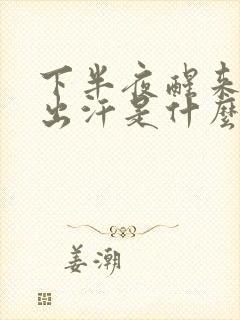 下半夜醒来
出汗是什麼
姜潮